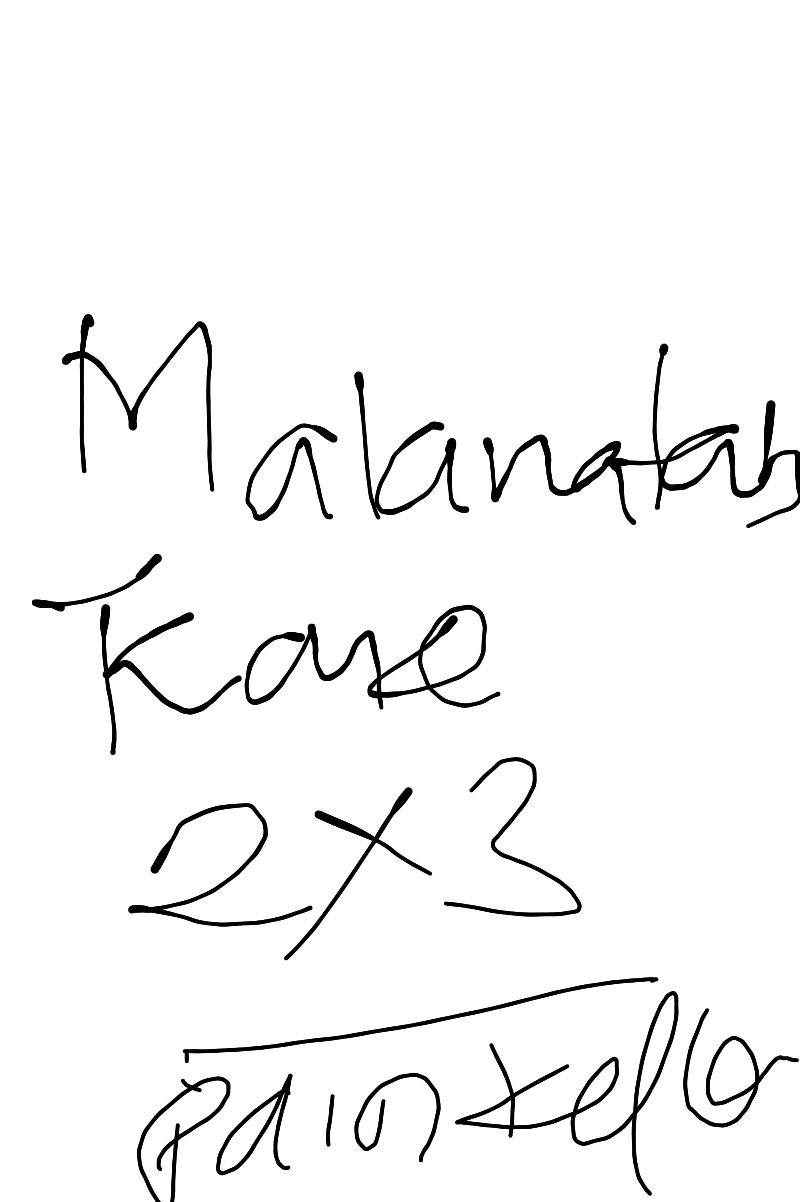 Malanatab
Kare
2x3
painkeller